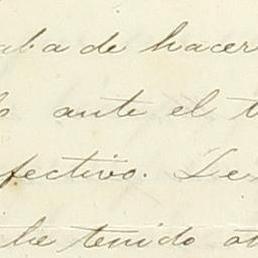 aba de hacer
ante el t
fectivo. Le
he tenido ot